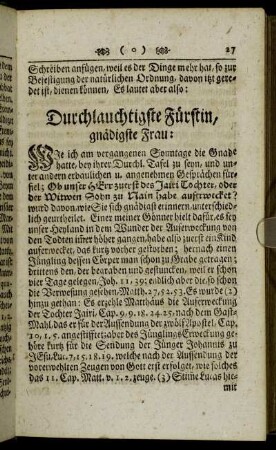 ( o ) 27
Schreiben anfügen, weil es der Dinge mehr hat, so zur
Befestigung der natürlichen Ordnung, davon itzt gere-
det ist, dienen können, Es lautet aber also:
Durchlauchtigste Fürstin,
gnädigste Frau:
Wie ich am vergangenen Sonntage die Gnade
hatte, bey ihrer Durchl. Tafel zu seyn, und un-
ter andern erbaulichen u. angenehmen Gesprächen für-
fiel: Ob unser HErr zuerst des Jairi Tochter, oder
der Witwen Sohn zu Nain habe aufferwecket?
wurd davon, wie Sie sich gnädigst erinnern, unterschied-
lich geurtheilet. Einer meiner Gönner hielt dafür, es sey
unser Heyland in dem Wunder der Aufferweckung von
den Todten immer höher gangen, habe also zuerst ein Kind
aufferwecket, das kurz vorher gestorben; hernach einen
Jüngling dessen Cörper man schon zu Grabe getragen;
drittens den, der begraben und gestuncken, weil er schon
vier Tage gelegen, Joh. 11, 39; endlich aber die, so schon
die Verwesung gesehen, Matth. 27, 52. 53. Es wurd (2)
hinzu gethan: Es erzehle Matthäus die Aufferweckung
der Tochter Jairi, Cap. 9, 9. 18. 24. 25. nach dem Gast-
Mahl, das er für der Aussendung der zwölf Apostel, Cap.
10, 1. 5. angestifftet; aber des Jünglings Erweckung ge-
höre kurtz für die Sendung der Jünger Johannis zu
JEsu, Luc. 7, 15. 18. 19. welche nach der Aussendung der
vorerwehlten Zeugen von Gott erst erfolget, wie solches
das 11. Cap. Matt. v. 1. 2. zeuge. (3) Stime Lucas hie-
mit